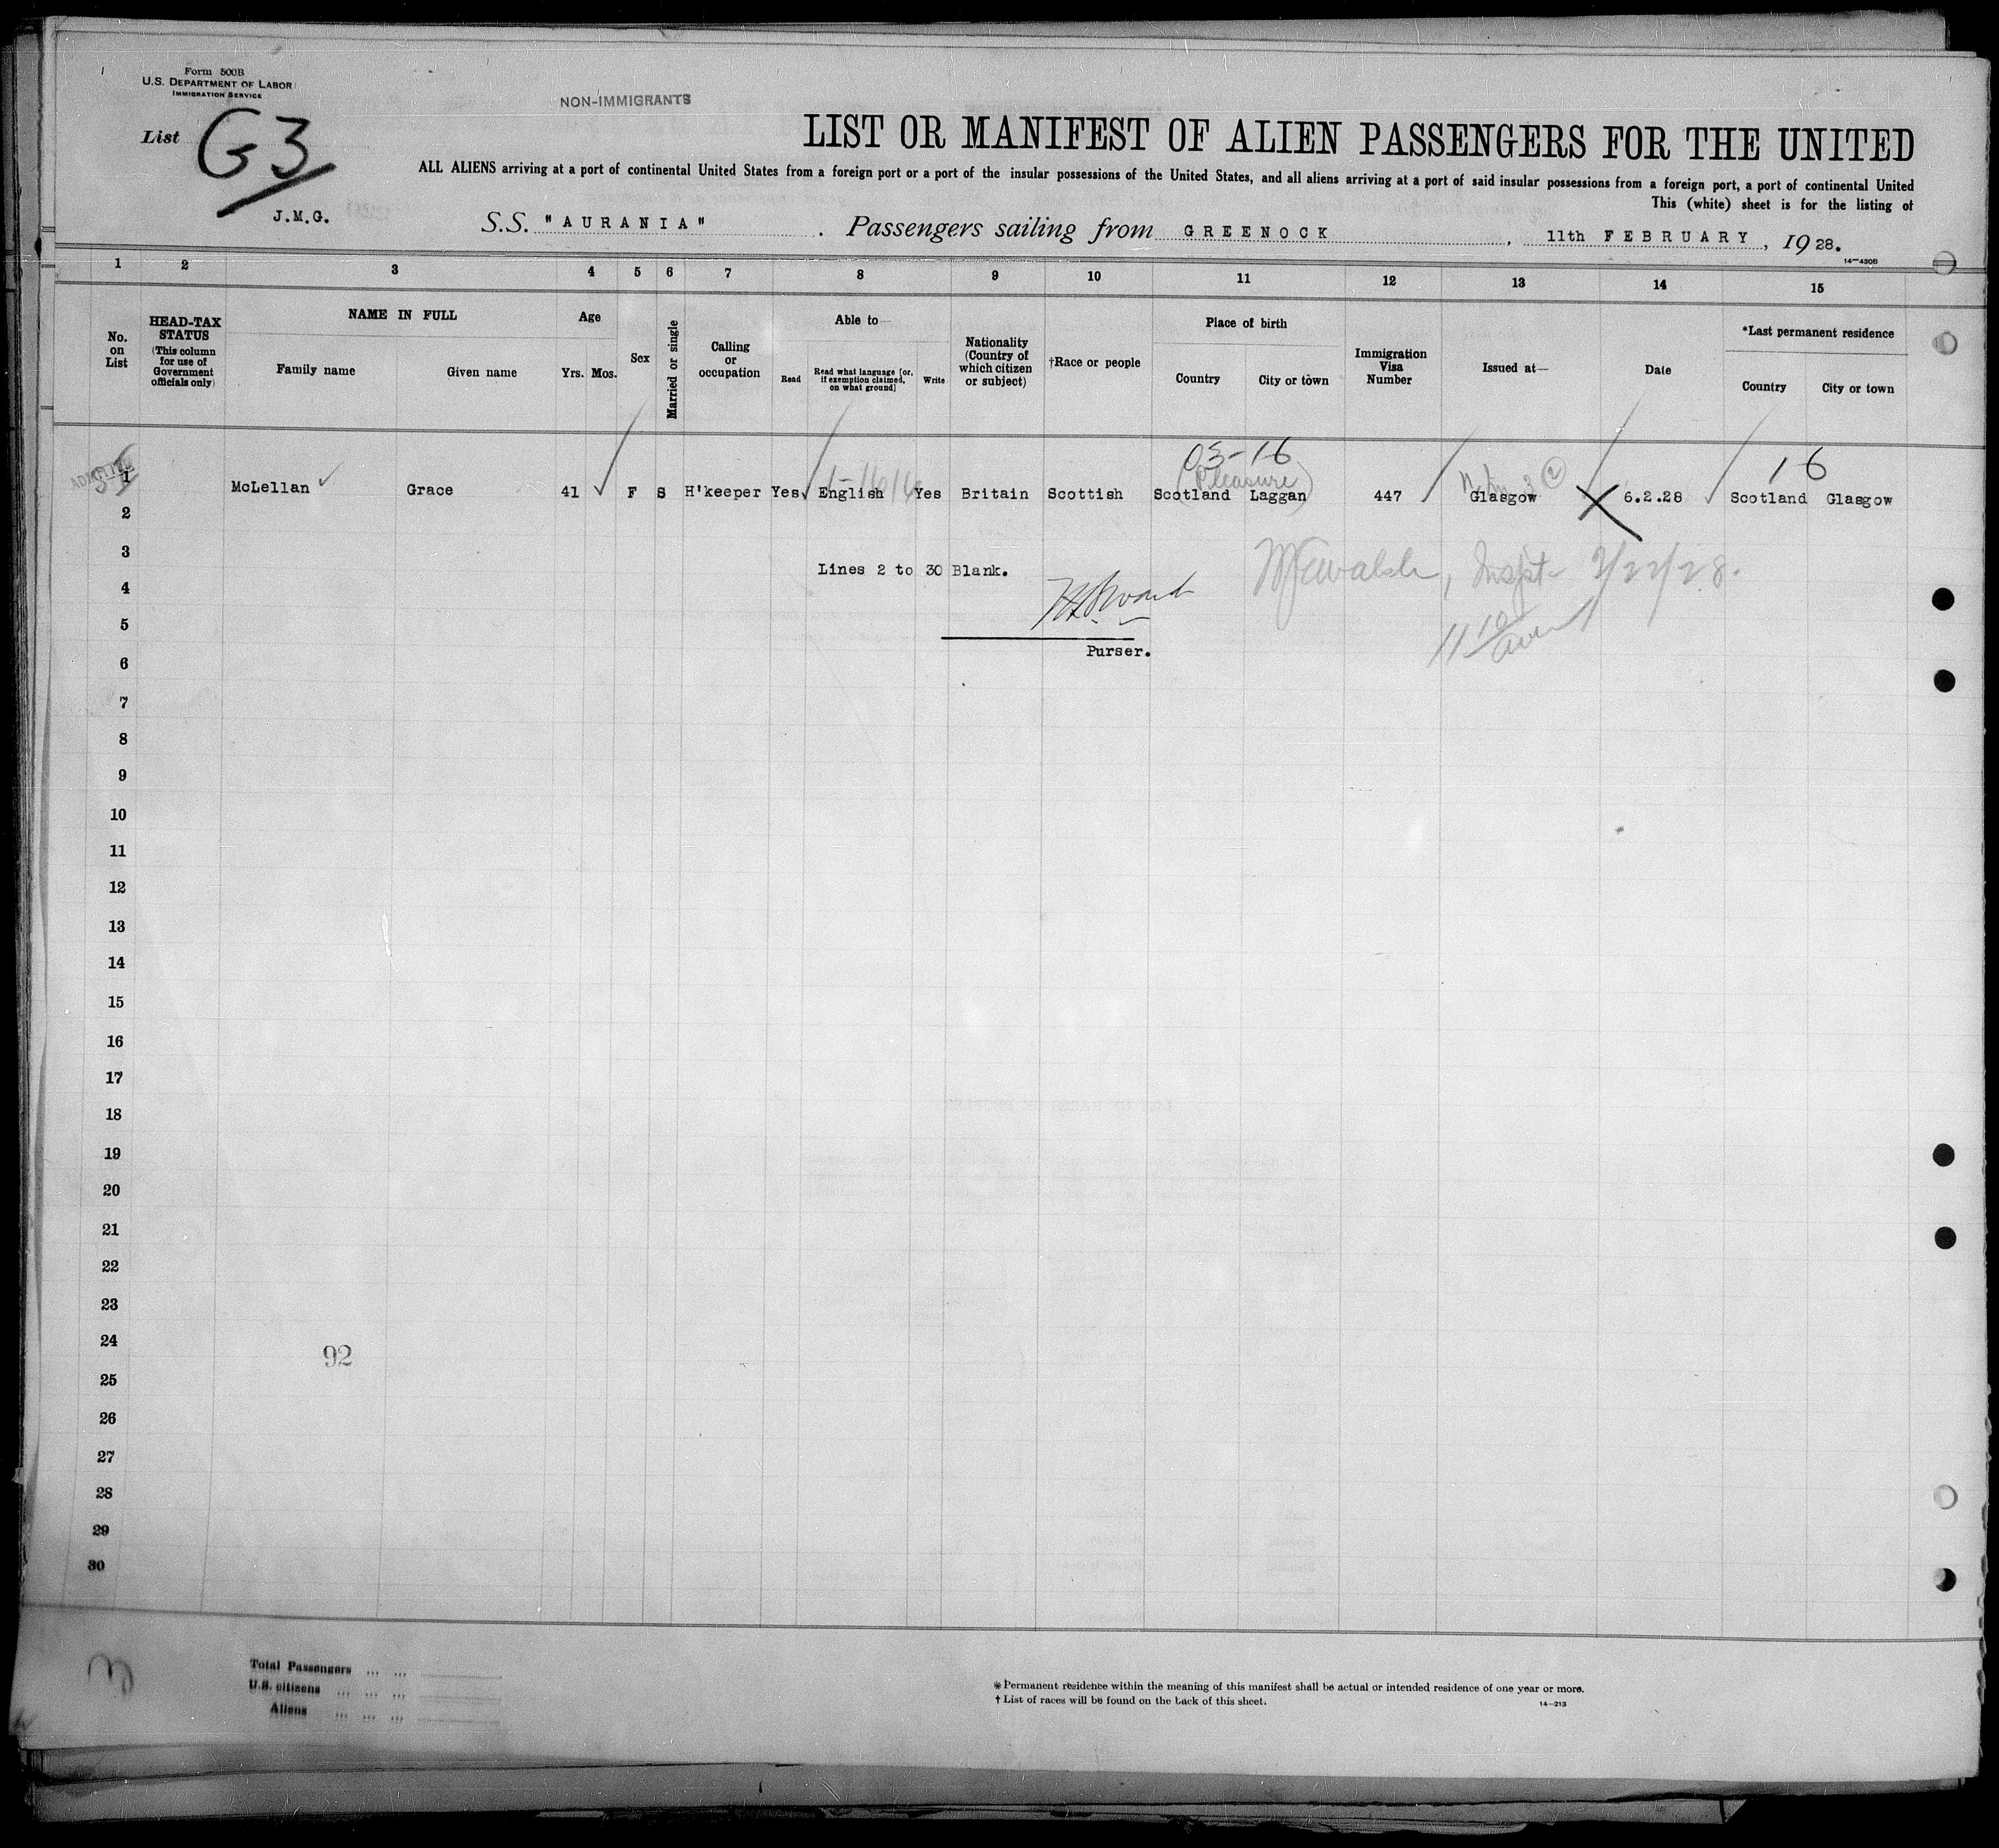 Form 500B
U.S. DEPARTMENT OF LABOR
IMMIGRATION SERVICE
NON-IMMIGRANTS
List G3
J.M.G.
LIST OR MANIFEST OF ALIEN PASSENGERS FOR THE UNITED
ALL ALIENS arriving at a port of continental United States from a foreign port or a port of the insular possessions of the United States, and all aliens arriving at a port of said insular possessions from a foreign port, a port of continental United
This (white) sheet is for the listing of
S.S. "AURANIA" . Passengers sailing from GREENOCK, 11th FEBRUARY, 1928.
14-430B
1 2 3 4 5 6 7 8 9 10 11 12 13 14 15
No. on List
HEAD-TAX STATUS (This column for use of Government officials only)
NAME IN FULL
Family name Given name
Age
Yrs. Mos.
Sex
Married or single
Calling or occupation
Able to—
Read
Read what language [or, if exemption claimed, on what ground]
Write
Nationality (Country of which citizen or subject)
†Race or people
Place of birth
Country City or town
Immigration Visa Number
Issued at—
Date
*Last permanent residence
Country City or town
03-16
16
Pleasure
ADMITTED
1 McLellan Grace 41 F S H'keeper Yes English Yes Britain Scottish Scotland Laggan 447 Glasgow 6.2.28 Scotland Glasgow
2
3
Lines 2 to 30 Blank.
Inspt. 2/22/28.
4
5
Purser.
6
7
8
9
10
11
12
13
14
15
16
17
18
19
20
21
22
23
24
92
25
26
27
28
29
30
3
Total Passengers ... ...
U.S. citizens ... ... ...
Aliens ... ... ...
* Permanent residence within the meaning of this manifest shall be actual or intended residence of one year or more.
† List of races will be found on the back of this sheet.
14-213